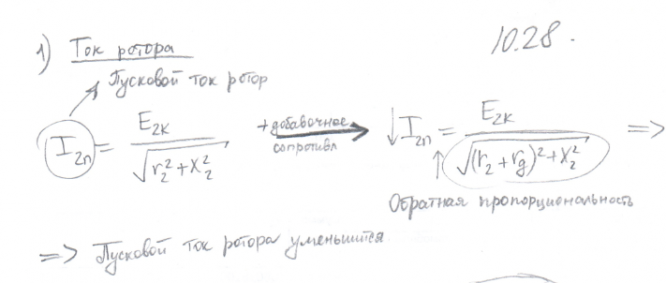 1) Ток ротора
10.28.
Пусковой ток ротор
I₂ₙ = E₂ₖ / √(r₂² + X₂²) + добавочное сопротивл → ↓ I₂ₙ = E₂ₖ / √((r₂ + rg)² + X₂²) =>
Обратная пропорциональность
=> Пусковой ток ротора уменьшится